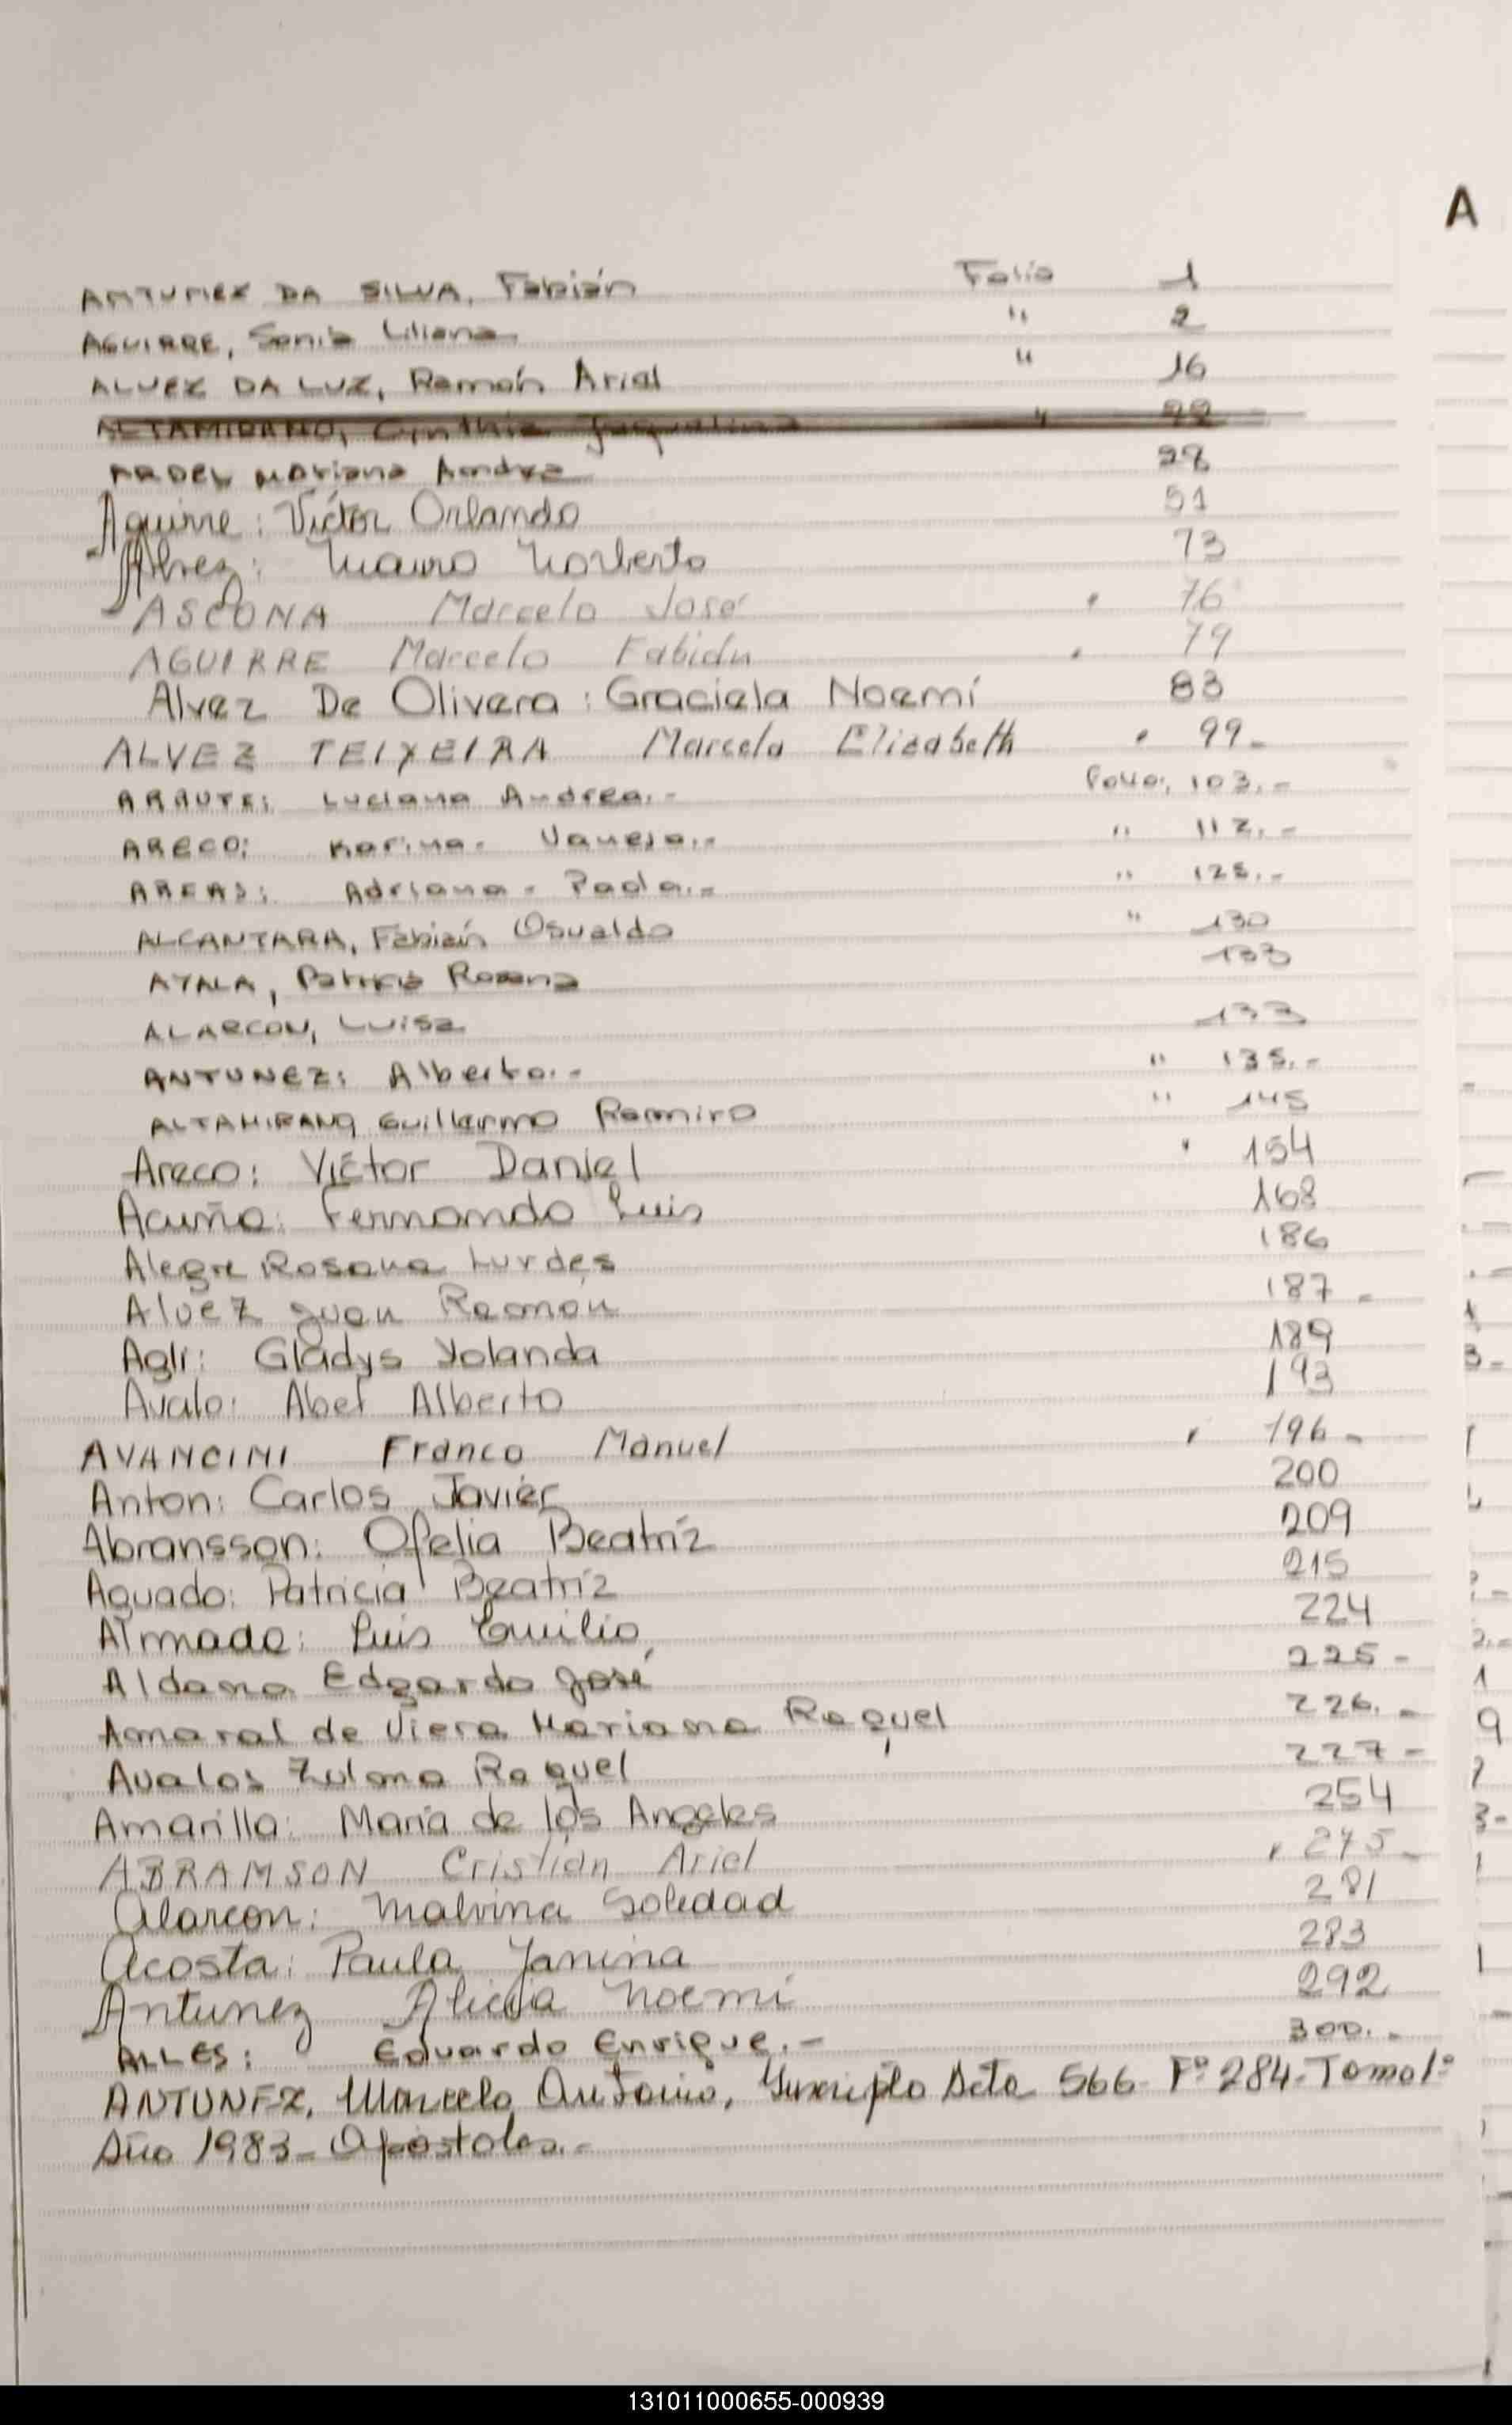 A
ANTUNEZ DA SILVA, Fabián Folio 1
AGUIRRE, Sonia Liliana " 2
ALVEZ DA LUZ, Ramón Ariel " 16
ALTAMIRANO, Cinthia Jaquelina " 22
ARDEL Mariana Andrea 28
Aguirre: Víctor Orlando 51
Alvez: Mauro Norberto 73
ASCONA Marcelo José " 76
AGUIRRE Marcelo Fabián " 79
Alvez De Olivera: Graciela Noemí 83
ALVEZ TEIXEIRA Marcela Elizabeth " 99-
ARAUTE: Luciana Andrea.- Folio: 103.-
ARECO: Karina- Vanesa.- " 112.-
AREAS: Adriana- Paola.- " 125.-
ALCANTARA, Fabián Osvaldo " 130
AYALA, Patricia Rosana 133
ALARCON, Luisa 133
ANTUNEZ: Alberto.- " 135.-
ALTAMIRANO, Guillermo Ramiro " 145
Areco: Víctor Daniel " 154
Acuña: Fernando Luis 168
Alegre Rosana Lurdes 186
Alvez Juan Ramón 187-
Agli: Gladys Yolanda 189
Avalo: Abel Alberto 193
AVANCINI Franco Manuel " 196-
Anton: Carlos Javier 200
Abransson: Ofelia Beatríz 209
Aguado: Patricia Beatríz 215
Almada: Luis Emilio 224
Aldana Edgardo José 225-
Amaral de Viera Mariana Raquel 226.-
Avalos Zulma Raquel 227-
Amarilla: María de los Angeles 254
ABRAMSON Cristián Ariel " 275-
Alarcon: Malvina Soledad 281
Acosta: Paula Janina 283
Antunez Alicia Noemí 292
ALLES: Eduardo Enrique.- 300.-
ANTUNEZ, Marcelo Antonio, Inscripto Acta 566- Fº 284- Tomo 1º
Año 1983- Apóstoles.-
131011000655-000939